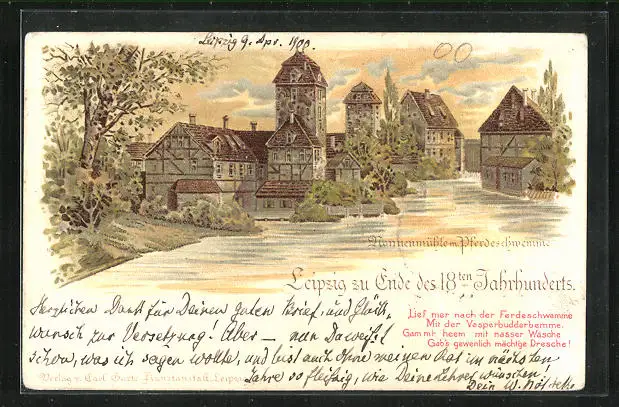 Leipzig 9. Apr. 1900.
Nonnenmühle m. Pferdeschwemme
Leipzig zu Ende des 18ten Jahrhunderts.
Lief mer nach der Ferdeschwemme
Mit der Vesperbudderbemme.
Gam mr heem mit nasser Wäsche
Gab's gewenlich mächtge Dresche!
Herzlichen Dank für Deinen guten Brief, und Glück-
wunsch zur Versetzung! Aber — nun Du weißt
schon, was ich sagen wollte, und bist auch ohne meinen Rat im nächsten
Jahre so fleißig, wie Deine Lehrer wünschen!
Dein W.
Verlag v. Carl Kunstanstalt, Leipzig